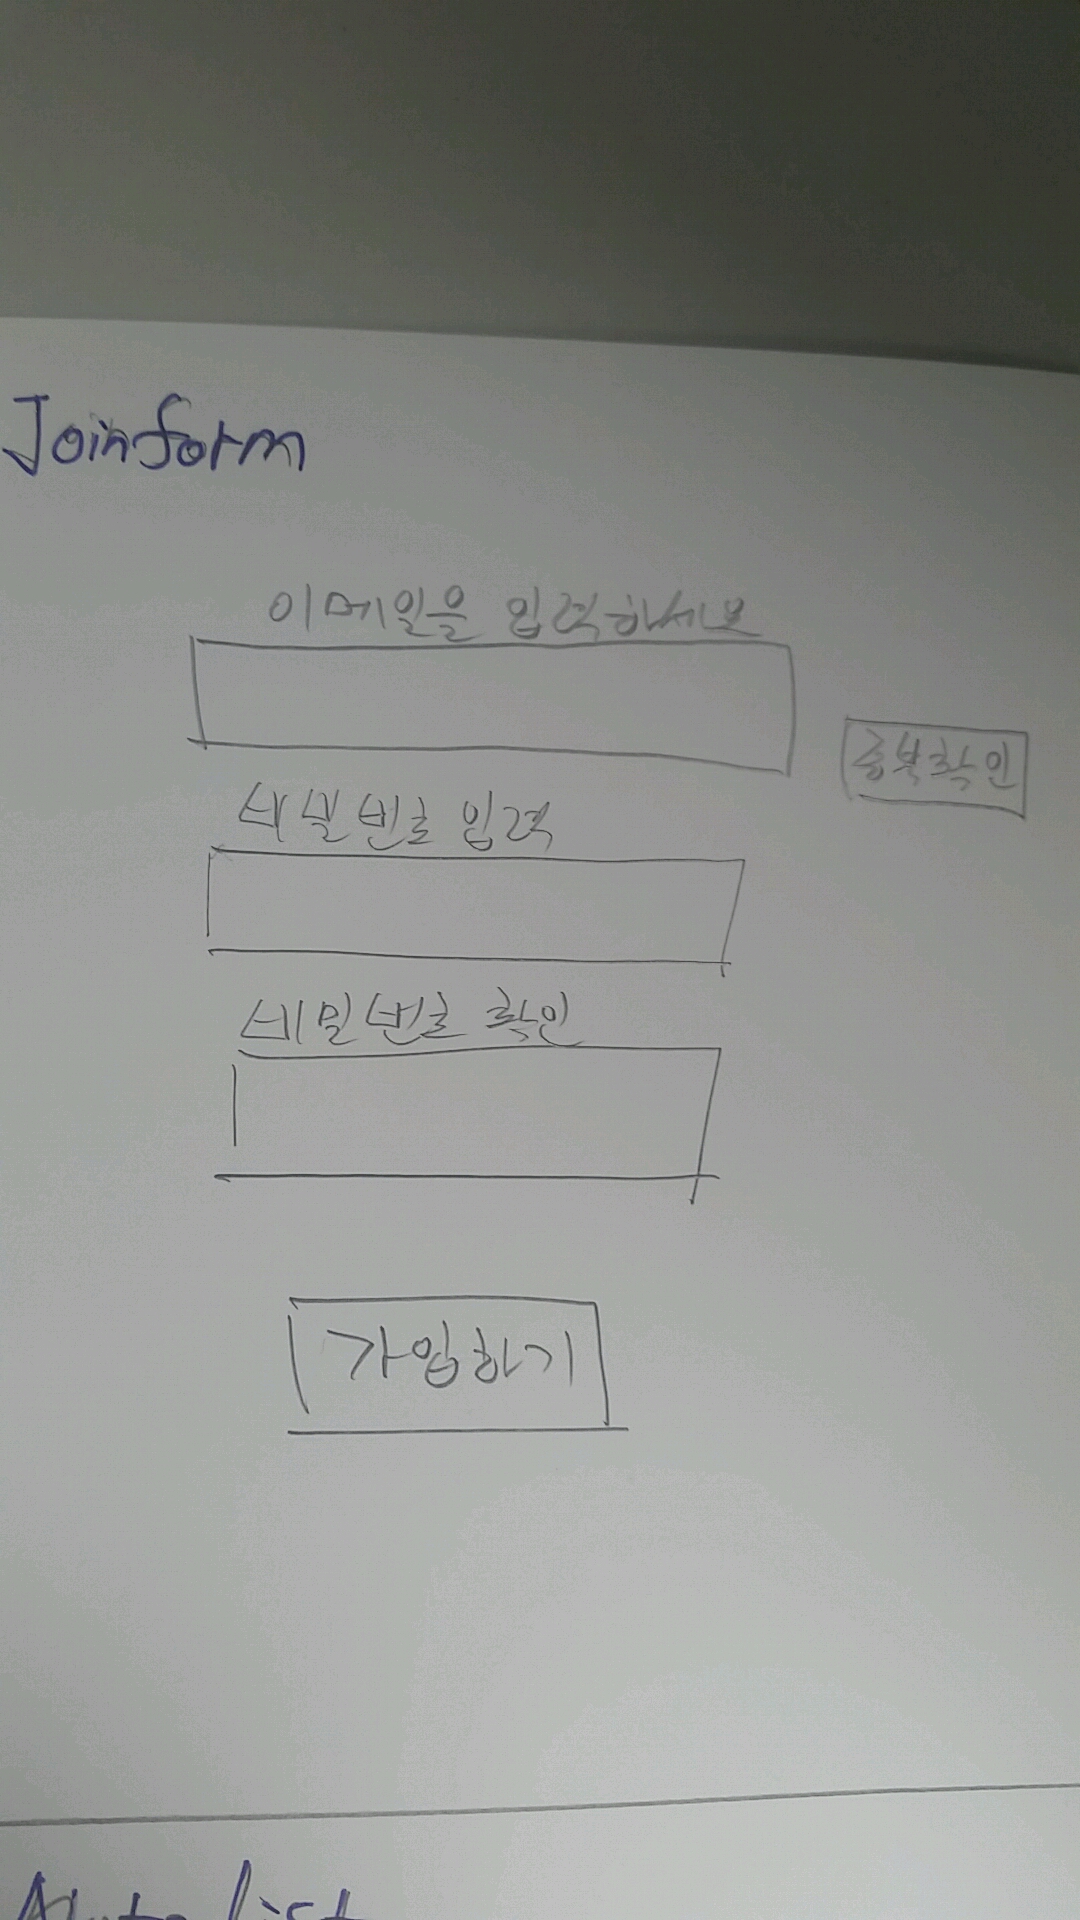 Joinform
이메일을 입력하세요
중복확인
비밀번호 입력
비밀번호 확인
가입하기
list